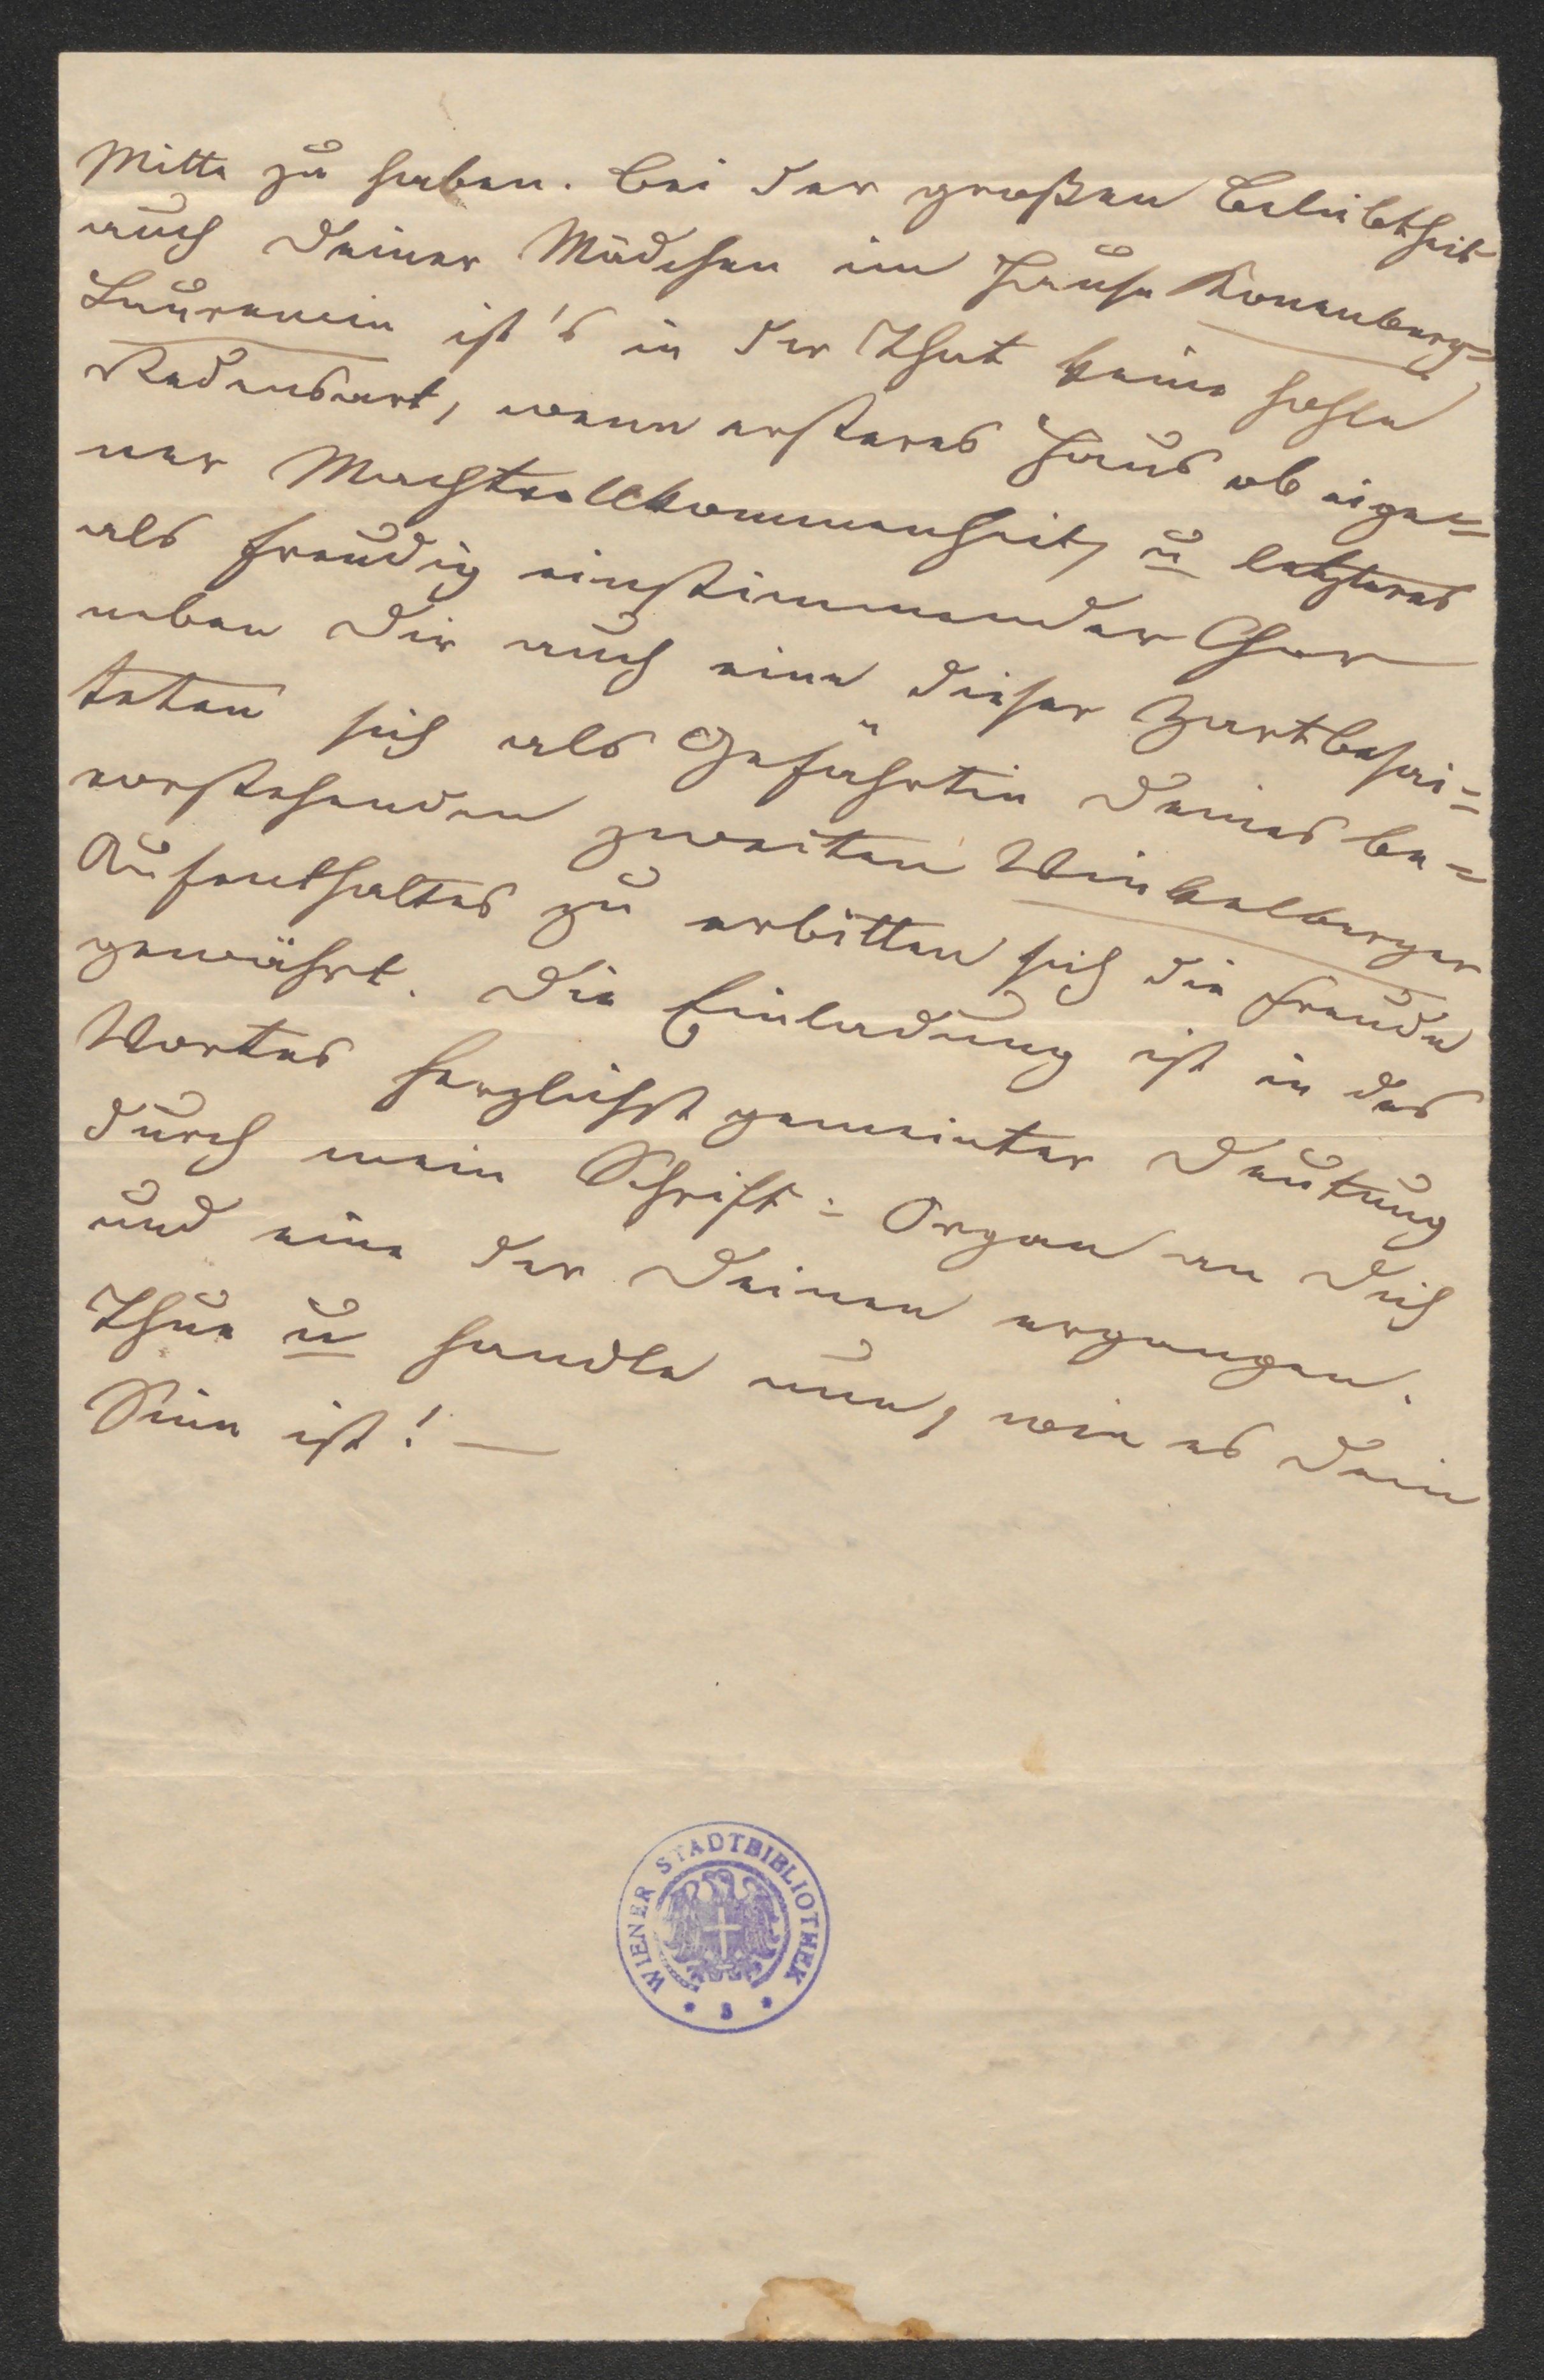 Mitte zu haben. Bei der großen Beliebtheit
auch Deiner Mädchen im Hause Konenberg=
Laurencin ist's in der That keine hohle
Redensart, wenn ersteres Haus ob eige=
ner Machtvollkommenheit, u letzteres
als freudig einstimmender Chor
neben Dir auch eine dieser Zartbesai=
teten sich als Gefährtin Deines be=
vorstehenden zweiten Winkelberger
Aufenthaltes zu erbitten sich die Freude
gewährt. Die Einladung ist in des
Wortes herzlichst gemeinter Deutung
durch mein Schrift=Organ an Dich
und eine der Deinen ergangen.
Thue u handle nun, wie es Dein
Sinn ist! —
WIENER STADTBIBLIOTHEK